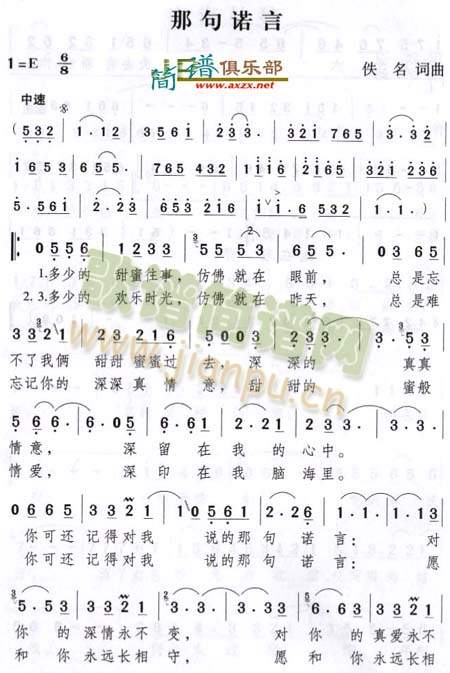 那句诺言
1=E 6/8
简谱俱乐部
www.axzx.net
佚 名 词曲
中速
( 532 | 1·12 | 3561 | 53·5 | 321 765 | 3·32 |
1653 | 65· | 765 432 | 1·11 | 122 123 | 2·22 |
5·561 | 2·23 | 535216 | 1 1·6 | 5323216 | 1·1·) |
0556 | 1233 | 5553 | 655· | 03 65 |
1.多少的 甜蜜往事，仿佛就在 眼前， 总是忘
2.3.多少的 欢乐时光，仿佛就在 昨天， 总是难
3321 | 23 216 | 5003 | 233· | 2·33 |
不了我俩 甜甜 蜜蜜过 去，深 深的 真真
忘记你的 深深真 情意，甜 甜的 蜜般
5 66· | 6·05 | 6·561 | 2·23 | 5·32 |
情意， 深 留在我 的 心中。
情爱， 深 印在我 脑 海里。
0665 | 3321 | 0561 | 2·26 | 1·1· | 1·13 |
你可还 记得对我 说的那 句 诺 言： 对
你可还 记得对我 说的那 句 诺 言： 愿
5·53 | 3321 | 1·23 | 3·23 | 5·53 | 3321 |
你 的 深情永不 变， 对 你 的 真爱永不
和 你 永远长相 守， 愿 和 你 永远长相
歌谱简谱网
www.jianpu.cn